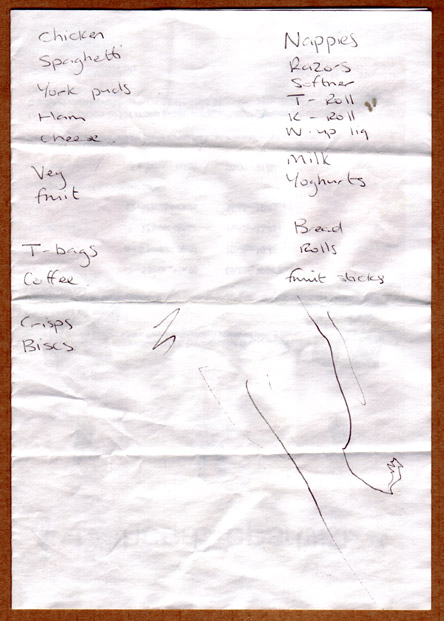 Chicken
Spaghetti
York puds
Ham
Cheese
Veg
fruit
T-bags
Coffee
Crisps
Biscs
Nappies
Razors
Softner
T-Roll
K-Roll
W-up liq
Milk
Yoghurts
Bread
Rolls
fruit sticks